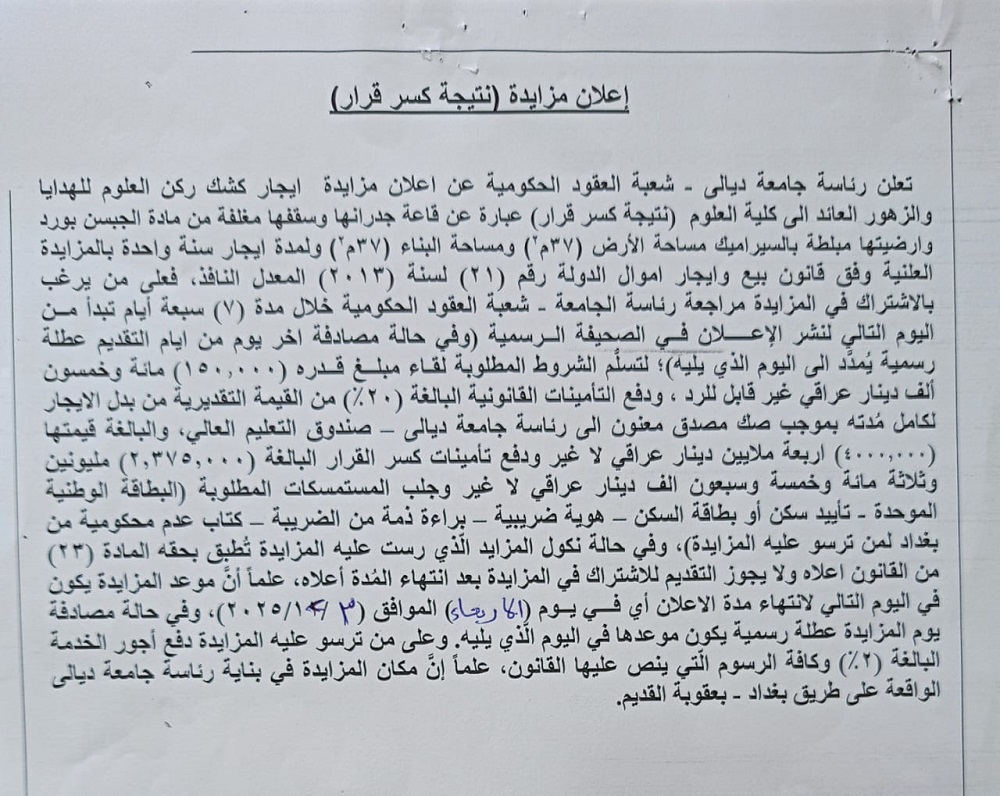 إعلان مزايدة (نتيجة كسر قرار)
تعلن رئاسة جامعة ديالى - شعبة العقود الحكومية عن اعلان مزايدة ايجار كشك ركن العلوم للهدايا
والزهور العائد الى كلية العلوم (نتيجة كسر قرار) عبارة عن قاعة جدرانها وسقفها مغلفة من مادة الجبسن بورد
وارضيتها مبلطة بالسيراميك مساحة الأرض (٣٧م٢) ومساحة البناء (٣٧م٢) ولمدة ايجار سنة واحدة بالمزايدة
العلنية وفق قانون بيع وايجار اموال الدولة رقم (٢١) لسنة (٢٠١٣) المعدل النافذ، فعلى من يرغب
بالاشتراك في المزايدة مراجعة رئاسة الجامعة - شعبة العقود الحكومية خلال مدة (٧) سبعة أيام تبدأ مــن
اليوم التالي لنشر الإعــلان فـي الصحيفة الـرسمية (وفي حالة مصادفة اخر يوم من ايام التقديم عطلة
رسمية يُمدَّد الى اليوم الذي يليه)؛ لتسلُّم الشروط المطلوبة لقاء مبلـغ قدره (١٥٠,٠٠٠) مائة وخمسون
ألف دينار عراقي غير قابل للرد ، ودفع التأمينات القانونية البالغة (٢٠٪) من القيمة التقديرية من بدل الايجار
لكامل مُدته بموجب صك مصدق معنون الى رئاسة جامعة ديالى – صندوق التعليم العالي، والبالغة قيمتها
(٤٠٠٠,٠٠٠) اربعة ملايين دينار عراقي لا غير ودفع تأمينات كسر القرار البالغة (٢,٣٧٥,٠٠٠) مليونين
وثلاثة مائة وخمسة وسبعون الف دينار عراقي لا غير وجلب المستمسكات المطلوبة (البطاقة الوطنية
الموحدة - تأييد سكن أو بطاقة السكن – هوية ضريبية – براءة ذمة من الضريبة – كتاب عدم محكومية من
بغداد لمن ترسو عليه المزايدة)، وفي حالة نكول المزايد الّذي رست عليه المزايدة تُطبق بحقه المادة (٢٣)
من القانون اعلاه ولا يجوز التقديم للاشتراك في المزايدة بعد انتهاء المُدة أعلاه، علماً أنَّ موعد المزايدة يكون
في اليوم التالي لانتهاء مدة الاعلان أي فــي يــوم (الاربعاء) الموافق (٣ / ٢٠٢٥/١٢)، وفي حالة مصادفة
يوم المزايدة عطلة رسمية يكون موعدها في اليوم الّذي يليه. وعلى من ترسو عليه المزايدة دفع أجور الخدمة
البالغة (٢٪) وكافة الرسوم الّتي ينص عليها القانون، علماً إنَّ مكان المزايدة في بناية رئاسة جامعة ديالى
الواقعة على طريق بغداد - بعقوبة القديم.